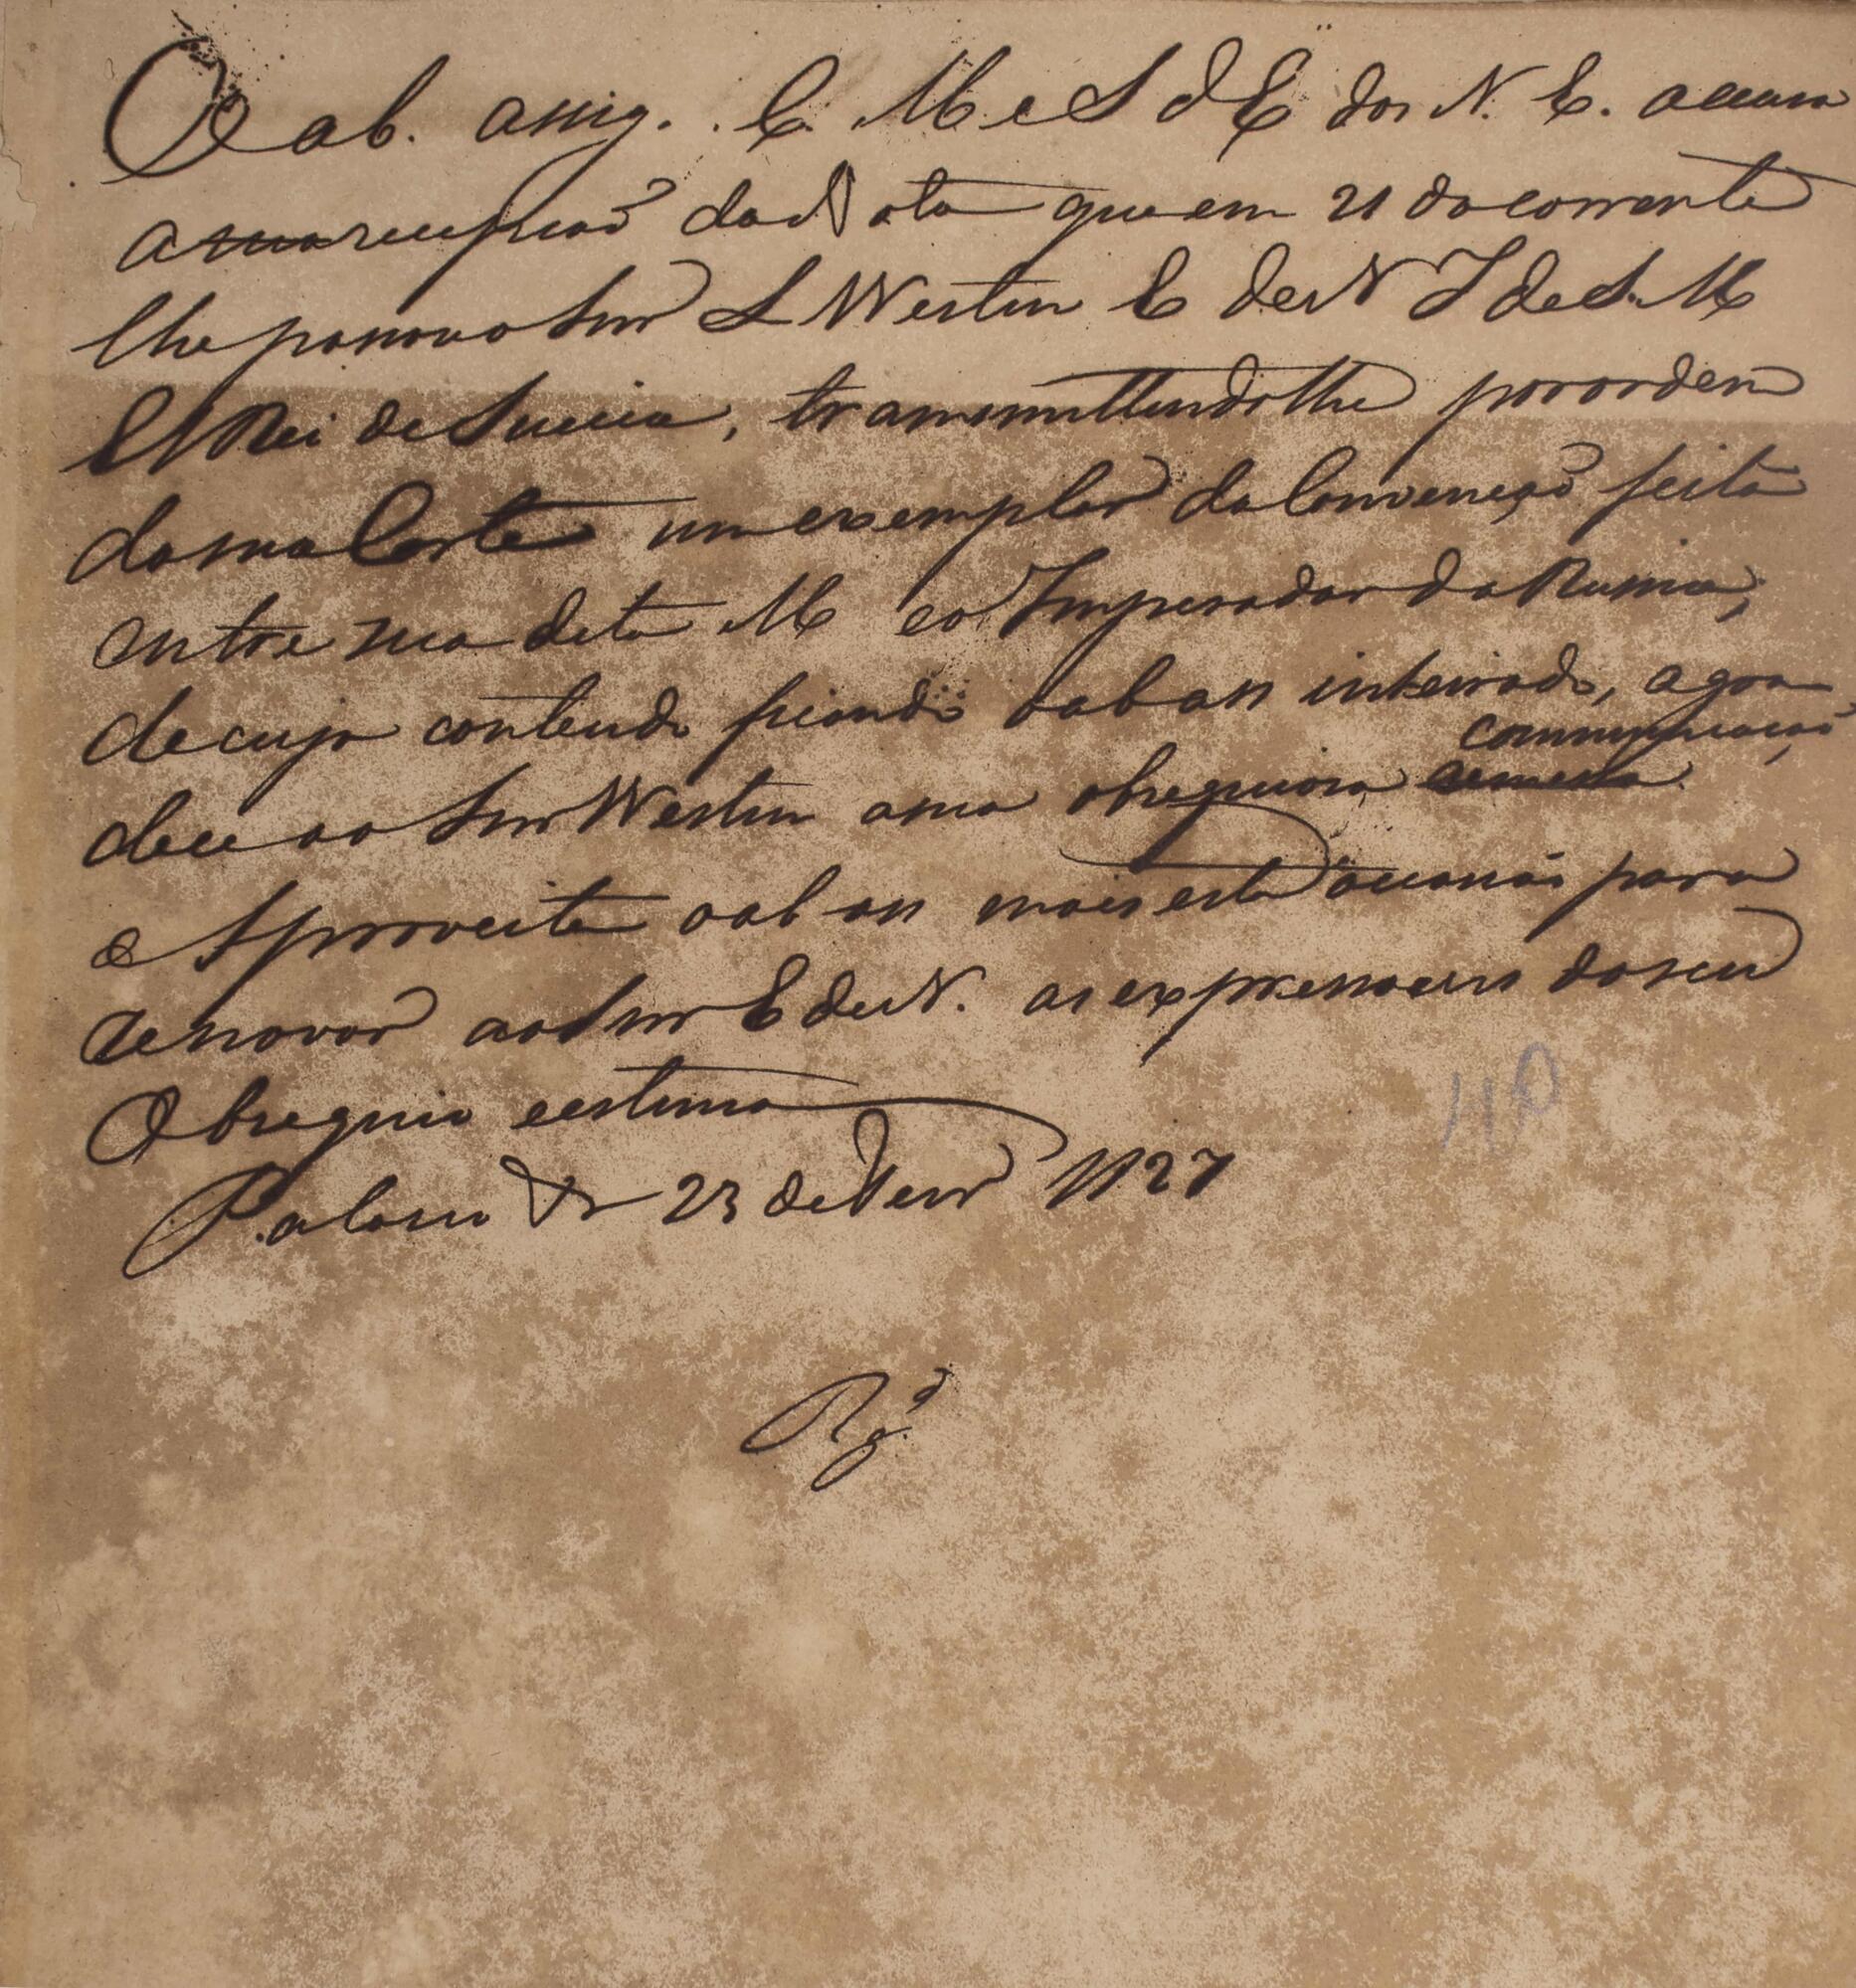 O ab. assig. C. M. e S d E dos N. E. accusa
a sua recepçaõ da Nota que em 21 do corrente
lhe passou o Snr L Westin E de N I de S. M
ElRei de Suecia, transmittindo lhe por ordem
da sua Corte um exemplar da Convençaõ feita
entre sua dita M e o Imperador da Russia,
de cujo contendo ficando o ab ass inteirado, agra
communicaçaõ
dece ao Snr Westin a sua obsequiosa remessa
e Aproveita o ab ass mais esta occasiaõ para
renovar ao Snr E de N. as expressoens do seu
Obsequio e estima
Palacio 23 de 1827
110